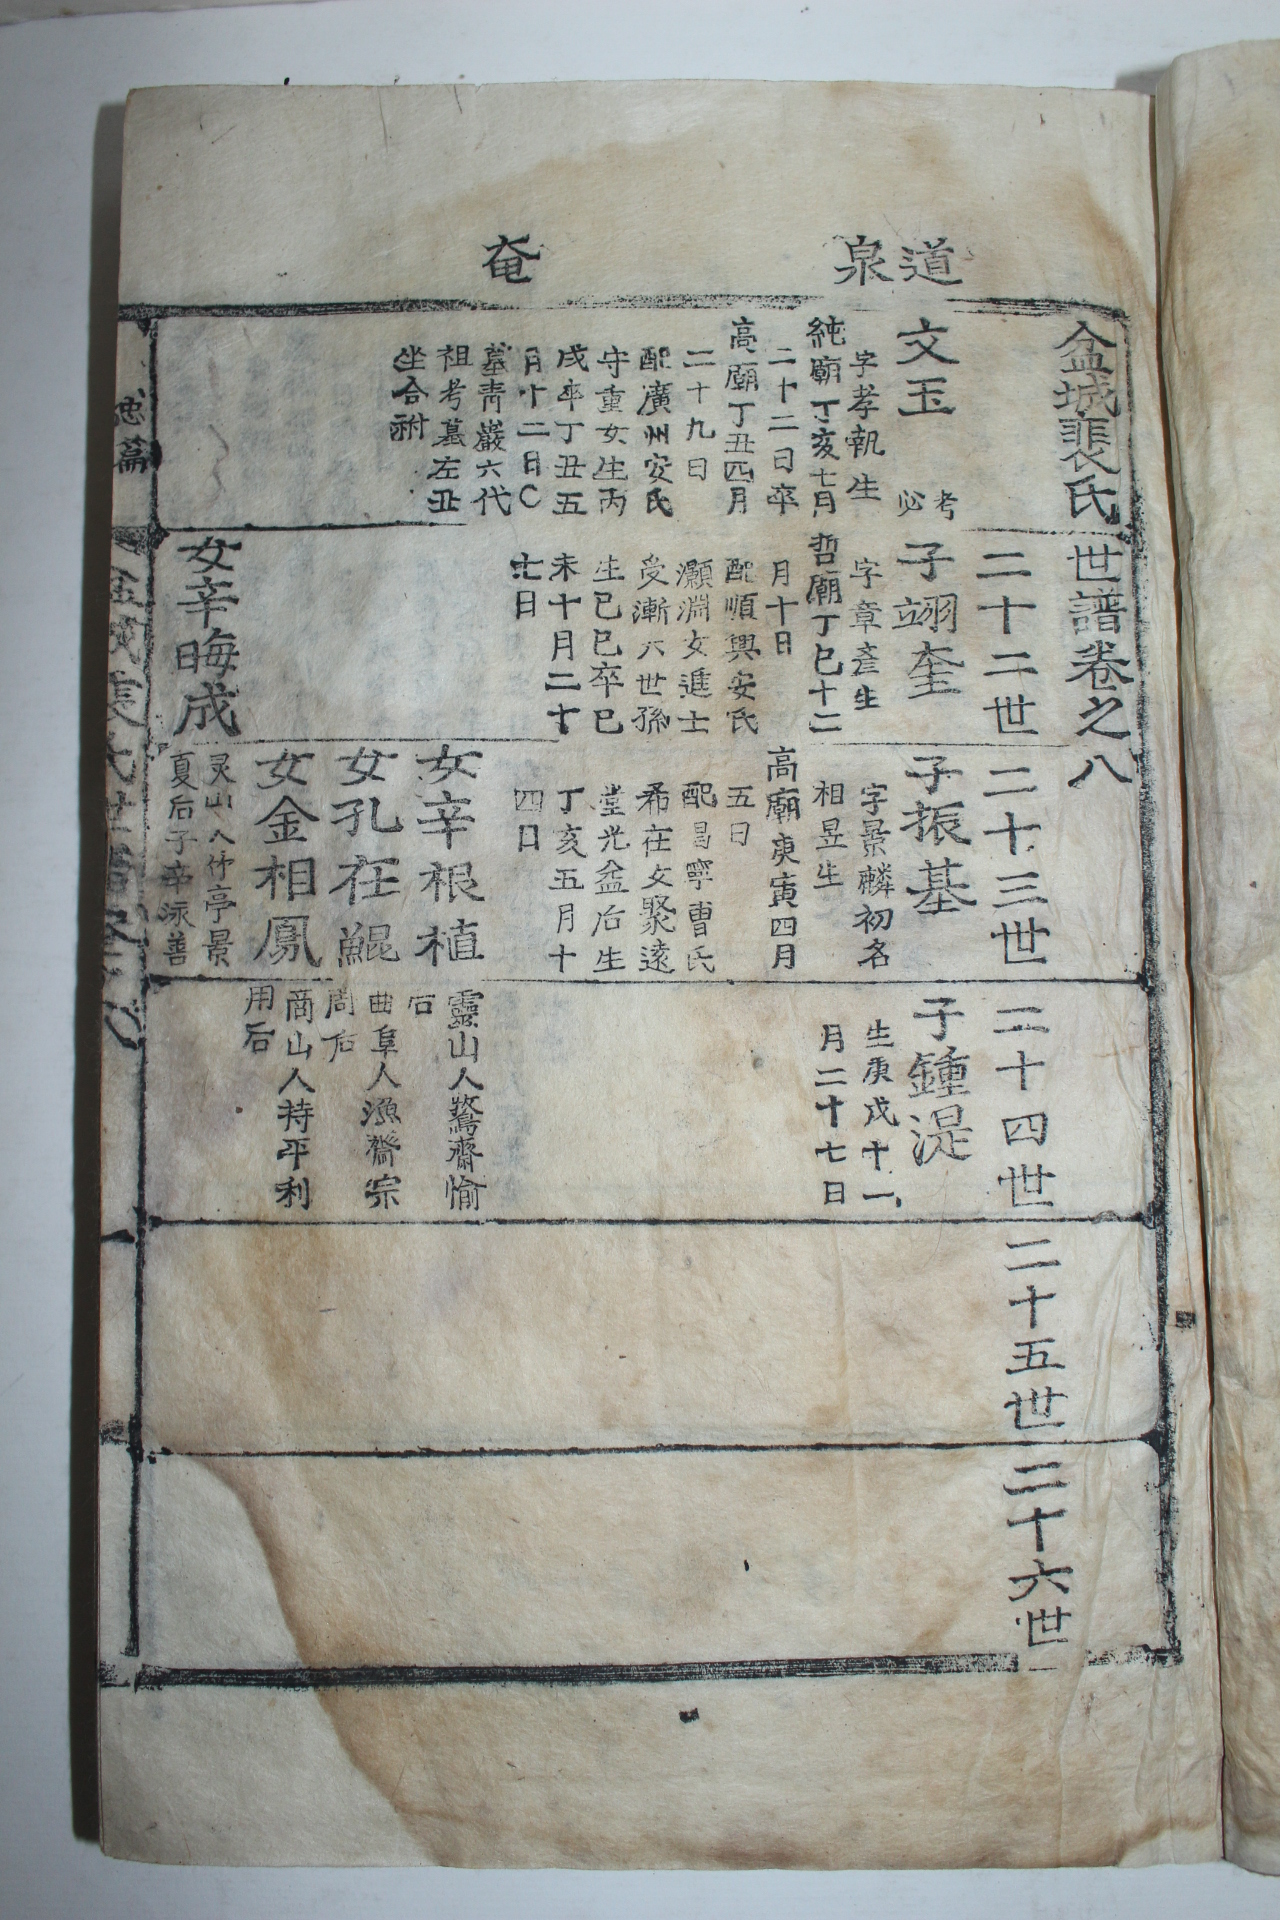 道泉
奄
盆城裵氏世譜卷之八
文玉
考必
字孝執生
純廟丁亥七月
二十二日卒
高廟丁丑四月
二十九日
配廣州安氏
守重女生丙
戌卒丁丑五
月十二日○
墓靑巖六代
祖考墓左丑
坐合祔
二十二世
子翊奎
字章彥生
哲廟丁巳十二
月十日
配順興安氏
灝淵女進士
受漸六世孫
生己巳卒己
未十月二十
七日
女辛晦成
二十三世
子振基
字景麟初名
相昱生
高廟庚寅四月
五日
配昌寧曺氏
希在女聚遠
堂光益后生
丁亥五月十
四日
女辛根植
女孔在鯤
女金相鳳
灵山人竹亭景
夏后子辛泳善
二十四世
子鍾湜
生庚戌十一
月二十七日
靈山人鷟齋愉
后
曲阜人漁齋宗
周后
商山人持平利
用后
二十五世
二十六世
忠篇
盆城裵氏世譜卷之八